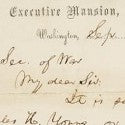 Executive Mansion,
Washington, Sep.
Sec. of War
My dear Sir.
It is